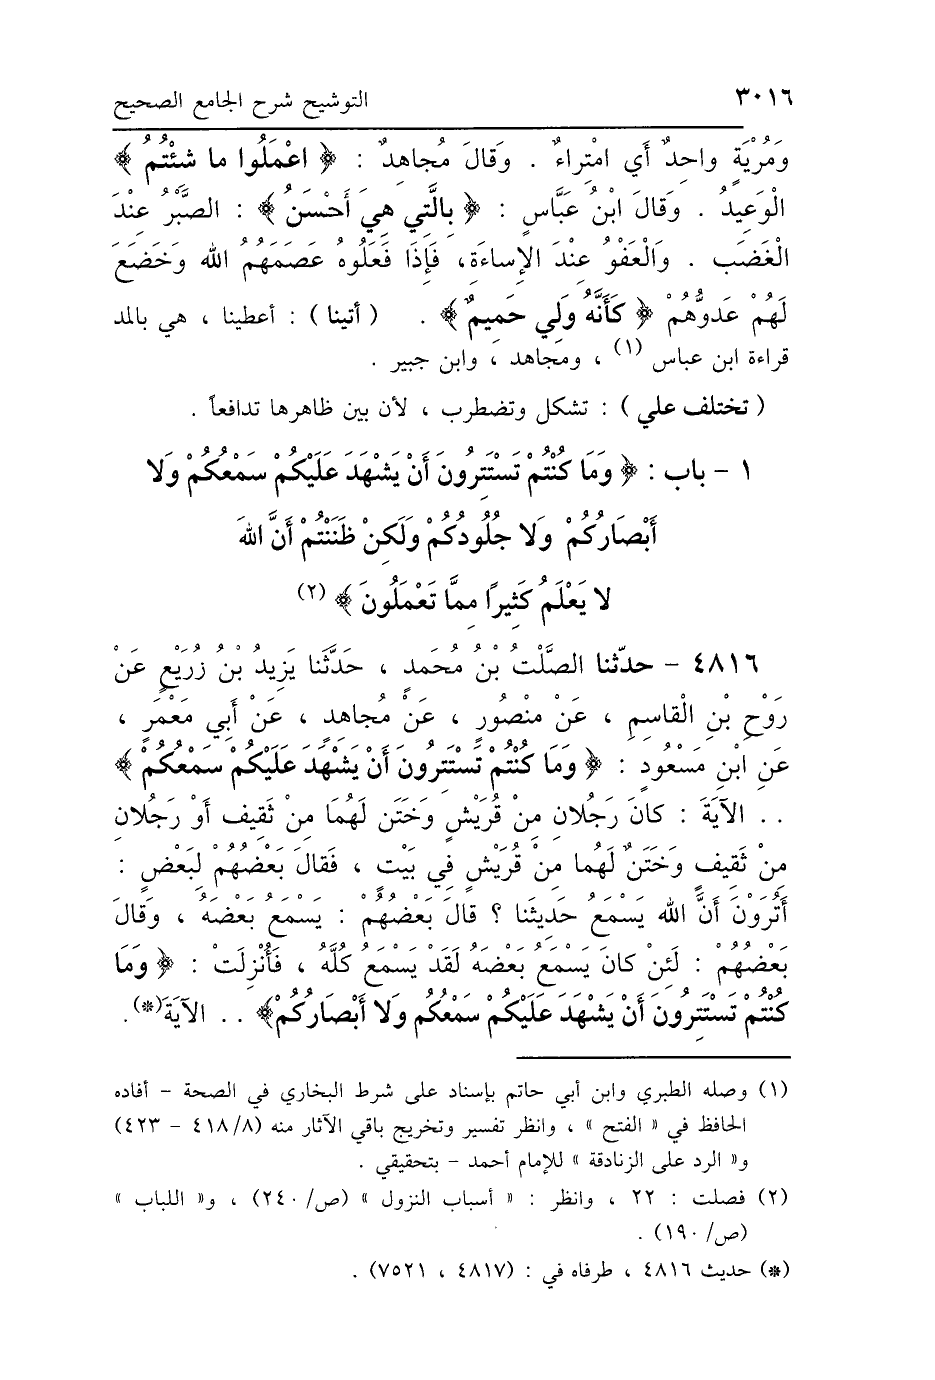 ٣٠١٦ التوشيح شرح الجامع الصحيح
وَمُرْيَةٍ واحِدٌ أَي امْتِراءٌ . وَقَالَ مُجاهِدٌ : ﴿ اعْمَلُوا ما شَئْتُمُ ﴾
الْوَعِيدُ . وَقَالَ ابْنُ عَبَّاسٍ : ﴿ بِالَّتِي هِيَ أَحْسَنُ ﴾ : الصَّبْرُ عِنْدَ
الْغَضَب . وَالْعَفْوُ عِنْدَ الإِساءَةِ، فَإِذَا فَعَلُوه عَصَمَهُمُ الله وَخَضَعَ
لَهُمْ عَدوُّهُمْ ﴿ كَأَنَّهُ وَلِي حَمِيمٌ ﴾ . ( أتينا ) : أعطينا ، هي بالمد
قراءة ابن عباس (١) ، ومجاهد ، وابن جبير .
( تختلف علي ) : تشكل وتضطرب ، لأن بين ظاهرها تدافعاً .
١ – باب : ﴿ وَمَا كُنْتُمْ تَسْتَتِرُونَ أَنْ يَشْهَدَ عَلَيْكُمْ سَمْعُكُمْ وَلا
أَبْصَارُكُمْ وَلا جُلُودُكُمْ وَلَكِنْ ظَنَنْتُمْ أَنَّ اللهَ
لا يَعْلَمُ كَثِيرًا مِمَّا تَعْمَلُونَ ﴾ (٢)
٤٨١٦ – حدّثنا الصَّلْتُ بْنُ مُحَمدٍ ، حَدَّثَنا يَزِيدُ بْنُ زُرَيْعٍ عَنْ
رَوْحِ بْنِ الْقاسِمِ ، عَنْ مَنْصُورٍ ، عَنْ مُجاهِدٍ ، عَنْ أَبِي مَعْمَرٍ ،
عَنِ ابْنِ مَسْعُودٍ : ﴿ وَمَا كُنْتُمْ تَسْتَتِرونَ أَنْ يَشْهَدَ عَلَيْكُمْ سَمْعُكُمْ ﴾
. . الآيَةَ : كانَ رَجُلانِ مِنْ قُرَيْشٍ وَخَتَن لَهُمَا مِنْ ثَقِيف أَوْ رَجُلانِ
مِنْ ثَقِيف وَخَتَنٌ لَهُما مِنْ قُرَيْشٍ فِي بَيْتٍ ، فَقالَ بَعْضُهُمْ لِبَعْضٍ :
أَتُرَوْنَ أَنَّ الله يَسْمَعُ حَدِيثَنا ؟ قالَ بَعْضُهُمْ : يَسْمَعُ بَعْضَهُ ، وَقَالَ
بَعْضُهُمْ : لَئِنْ كانَ يَسْمَعُ بَعْضَهُ لَقَدْ يَسْمَعُ كُلَّهُ ، فَأُنْزِلَتْ : ﴿ وَمَا
كُنْتُمْ تَسْتَتِرُونَ أَنْ يَشْهَدَ عَلَيْكُمْ سَمْعُكُم وَلا أَبْصَارُكُمْ﴾ . . الآيَةَ(*).
(١) وصله الطبري وابن أبي حاتم بإسناد على شرط البخاري في الصحة – أفاده
الحافظ في « الفتح » ، وانظر تفسير وتخريج باقي الآثار منه (٤١٨/٨ – ٤٢٣)
و« الرد على الزنادقة » للإمام أحمد – بتحقيقي .
(٢) فصلت : ٢٢ ، وانظر : « أسباب النزول » (ص/ ٢٤٠) ، و« اللباب »
(ص/ ١٩٠) .
(*) حديث ٤٨١٦ ، طرفاه في : (٤٨١٧ ، ٧٥٢١) .